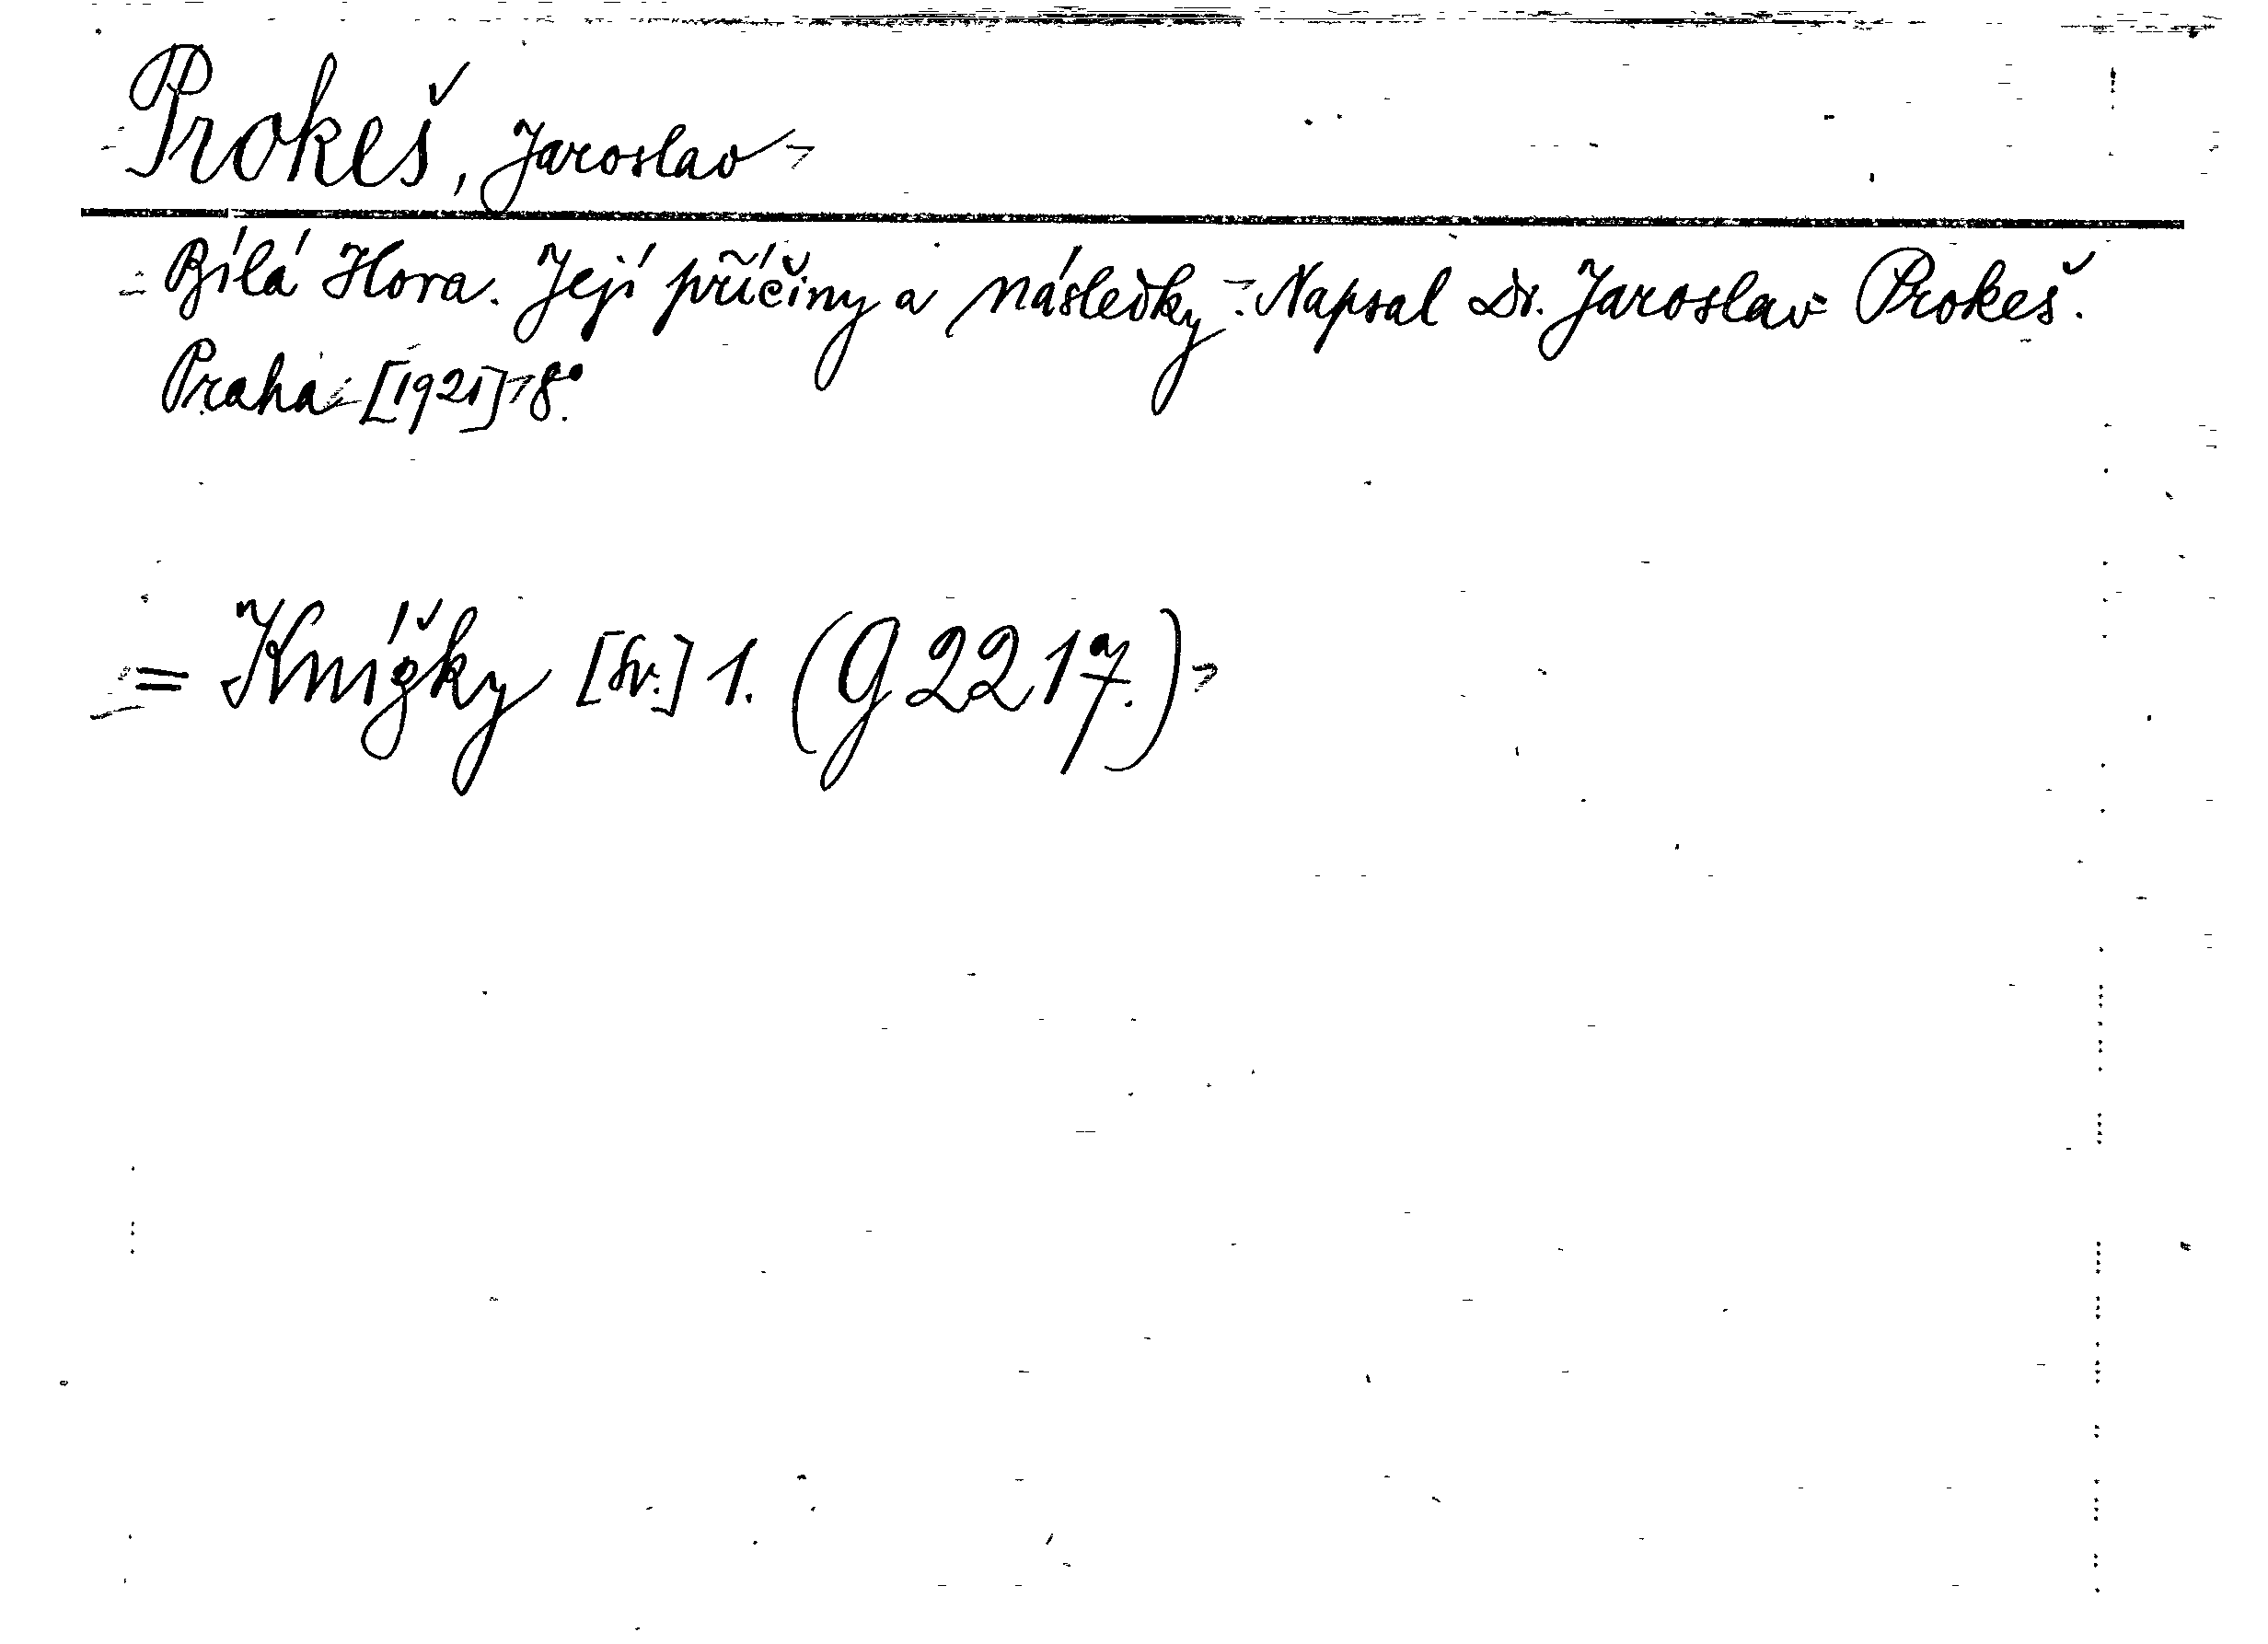 Prokeš, Jaroslav
Bílá Hora. Její příčiny a následky. Napsal Dr. Jaroslav Prokeš.
Praha [1921] 8°.
= Knížky [Sv.] 1. (G 2217.)